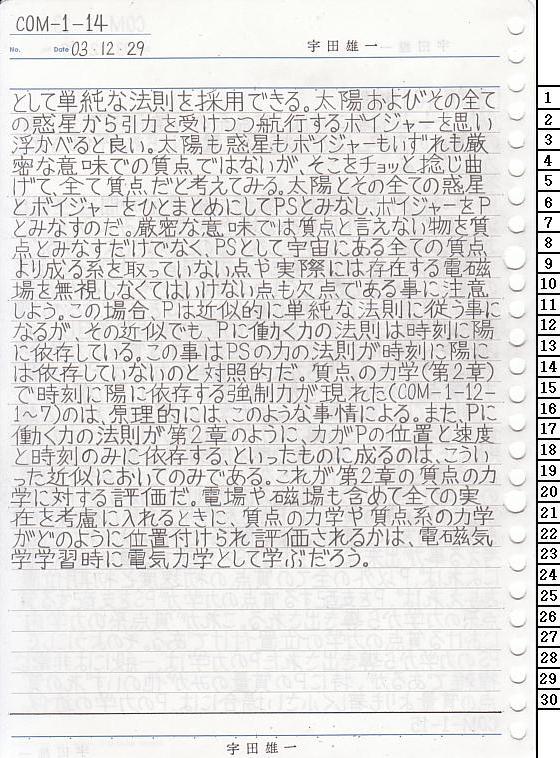 COM-1-14
No.
Date 03・12・29
宇田雄一
として単純な法則を採用できる。太陽およびその全て
の惑星から引力を受けつつ航行するボイジャーを思い
浮かべると良い。太陽も惑星もボイジャーもいずれも厳
密な意味での質点ではないが、そこをチョッと捻じ曲
げて、全て質点だと考えてみる。太陽とその全ての惑星
とボイジャーをひとまとめにしてPSとみなし、ボイジャーをP
とみなすのだ。厳密な意味では質点と言えない物を質
点とみなすだけでなく、PSとして宇宙にある全ての質点
より成る系を取っていない点や実際には存在する電磁
場を無視しなくてはいけない点も欠点である事に注意
しよう。この場合、Pは近似的に単純な法則に従う事に
なるが、その近似でも、Pに働く力の法則は時刻に陽
に依存している。この事はPSの力の法則が時刻に陽に
は依存していないのと対照的だ。質点の力学(第2章)
で時刻に陽に依存する強制力が現れた(COM-1-12-
1~7)のは、原理的には、このような事情による。また、Pに
働く力の法則が第2章のように、力がPの位置と速度
と時刻のみに依存する、といったものに成るのは、こうい
った近似においてのみである。これが第2章の質点の力
学に対する評価だ。電場や磁場も含めて全ての実
在を考慮に入れるときに、質点の力学や質点系の力学
がどのように位置付けられ評価されるかは、電磁気
学学習時に電気力学として学ぶだろう。
宇田雄一
1
2
3
4
5
6
7
8
9
10
11
12
13
14
15
16
17
18
19
20
21
22
23
24
25
26
27
28
29
30